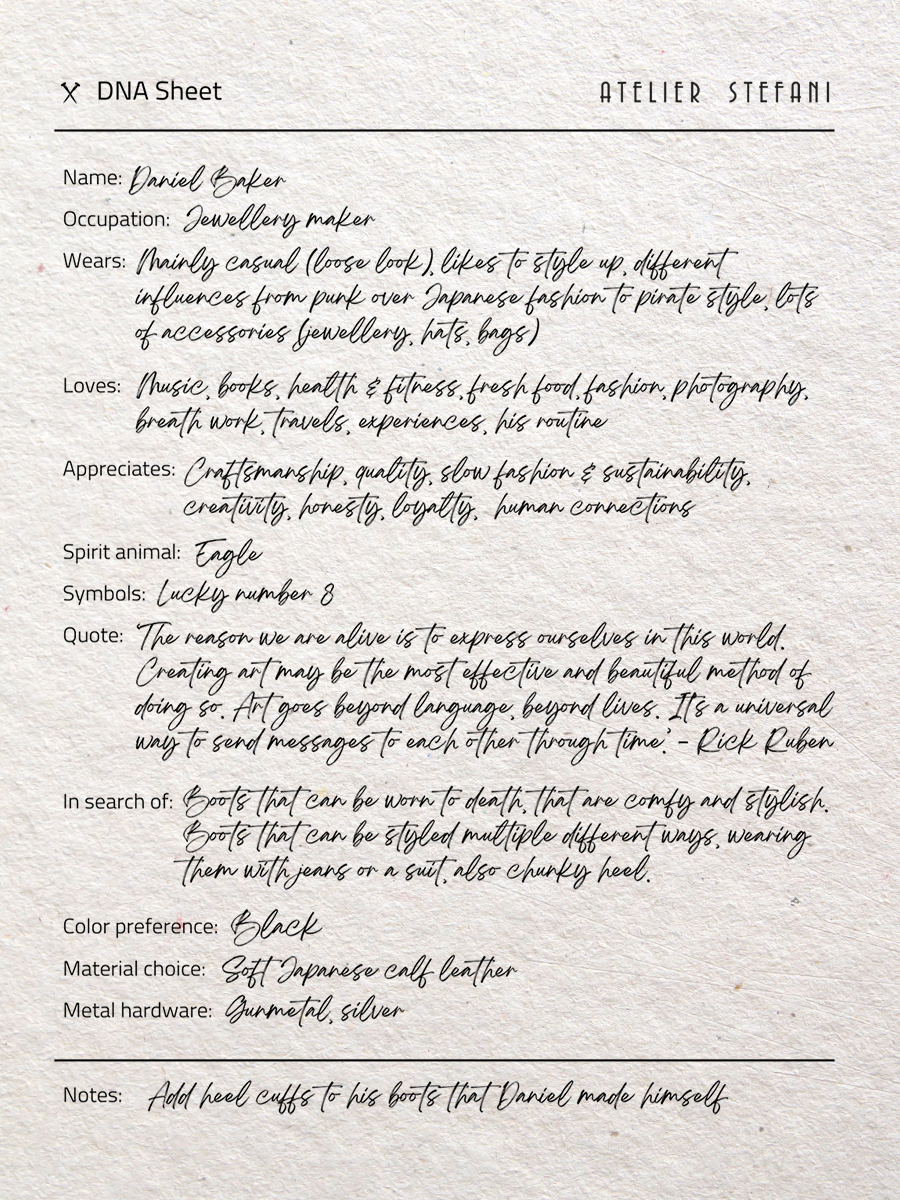 DNA Sheet ATELIER STEFANI
Name: Daniel Baker
Occupation: Jewellery maker
Wears: Mainly casual (loose look), likes to style up, different
influences from punk over Japanese fashion to pirate style, lots
of accessories (jewellery, hats, bags)
Loves: Music, books, health & fitness, fresh food, fashion, photography,
breath work, travels, experiences, his routine
Appreciates: Craftsmanship, quality, slow fashion & sustainability,
creativity, honesty, loyalty, human connections
Spirit animal: Eagle
Symbols: Lucky number 8
Quote: 'The reason we are alive is to express ourselves in this world.
Creating art may be the most effective and beautiful method of
doing so. Art goes beyond language, beyond lives. It's a universal
way to send messages to each other through time.' - Rick Ruben
In search of: Boots that can be worn to death, that are comfy and stylish.
Boots that can be styled multiple different ways, wearing
them with jeans or a suit, also chunky heel.
Color preference: Black
Material choice: Soft Japanese calf leather
Metal hardware: Gunmetal, silver
Notes: Add heel cuffs to his boots that Daniel made himself